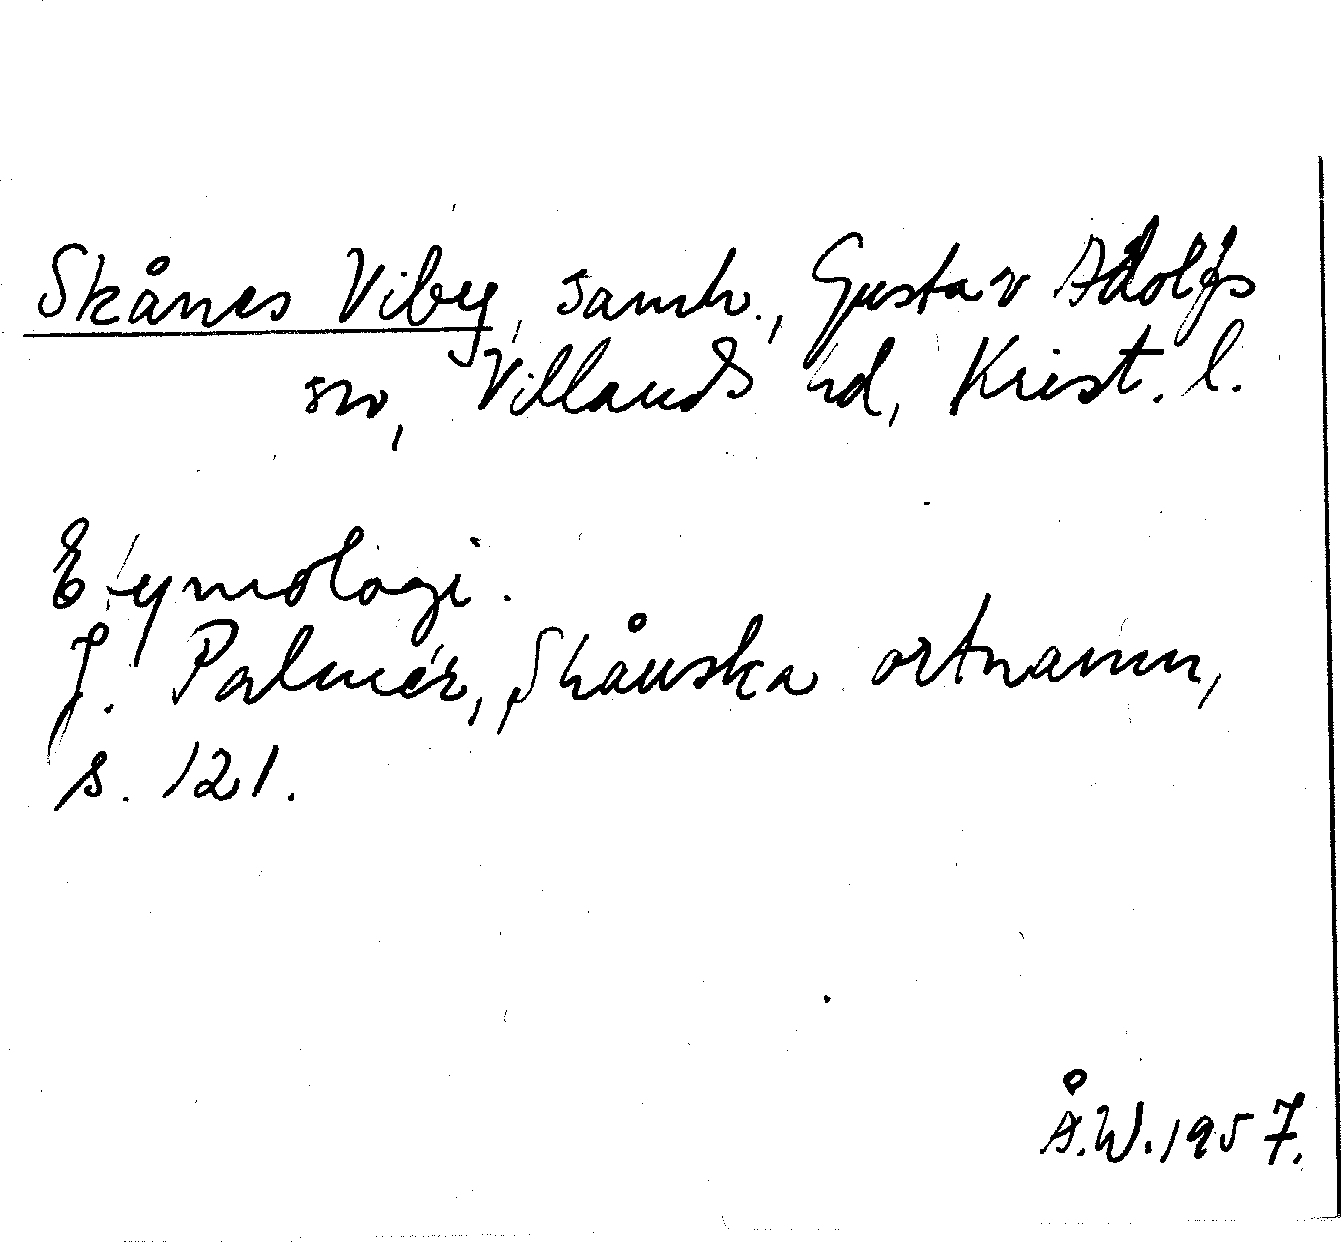 Skånes Viby, samh., Gustav Adolfs
sn, Villands hd, Krist. l.
Etymologi.
J. Palmér, Skånska ortnamn,
s. 121.
Å.W. 1957.